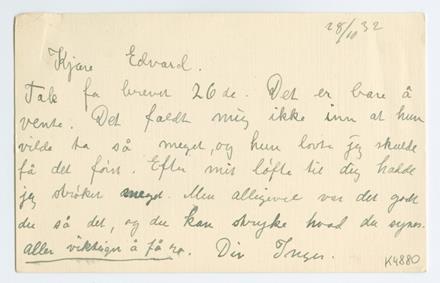 28/10 32
Kjære Edvard.
Takk for brevet 26 de. Det er bare å
vente. Det faldt mig ikke inn at hun
vilde ta så meget, og hun lovte jeg skulde
få det først. Efter mit løfte til dig hadde
jeg strøket meget. Men alligevel var det godt
du så det, og du kan stryke hvad du synes.
Aller viktigst å få ro. Din Inger.
K4880